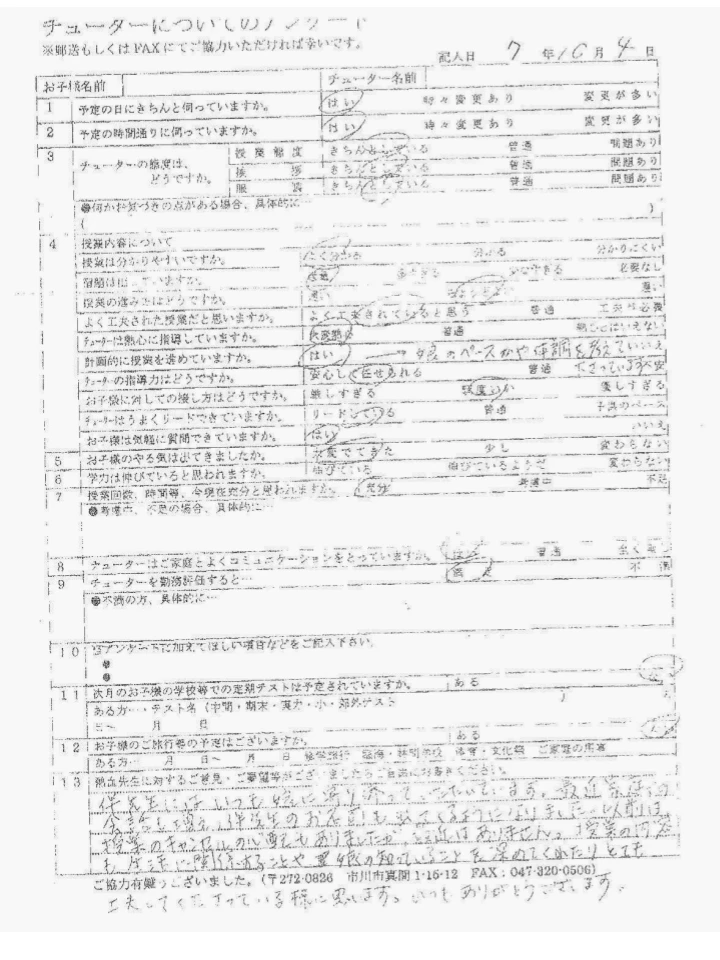 チューターについてのアンケート
※郵送もしくは FAX にてご協力いただければ幸いです。
記入日 7 年 10 月 4 日
お子様名前 チューター名前
1 予定の日にきちんと伺っていますか。 はい 時々変更あり 変更が多い
2 予定の時間通りに伺っていますか。 はい 時々変更あり 変更が多い
3 チューターの態度は、どうですか。 授業態度 きちんとしている 普通 問題あり
挨拶 きちんとしている 普通 問題あり
服装 きちんとしている 普通 問題あり
●何かお気づきの点がある場合、具体的に…
( )
4 授業内容について
授業は分かりやすいですか。 よく分かる 分かる 分かりにくい
宿題は出ていますか。 適量 多すぎる 少なすぎる 必要なし
授業の進みはどうですか。 速い 遅い
よく工夫された授業だと思いますか。 よく工夫されていると思う 普通 工夫が必要
チューターは熱心に指導していますか。 大変熱心 普通 熱心とはいえない
計画的に授業を進めていますか。 はい → 娘のペースや体調を考えて いいえ
チューターの指導力はどうですか。 安心して任せられる 普通 下さっています 不安
お子様に対しての接し方はどうですか。 厳しすぎる 程度いい 優しすぎる
チューターはうまくリードできていますか。 リードしている 普通 子供のペース
お子様は気軽に質問できていますか。 はい いいえ
5 お子様のやる気は出てきましたか。 大変でてきた 少し 変わらない
6 学力は伸びていると思われますか。 伸びている 伸びているようだ 変わらない
7 授業回数、時間等、今現在充分と思われますか。 充分 考慮中 不足
●考慮中、不足の場合、具体的に…
8 チューターはご家庭とよくコミュニケーションをとっていますか。 はい 普通 全くない
9 チューターを勤務評価すると… 満足 不満
●不満の方、具体的に…
10 当アンケートに加えてほしい項目などをご記入下さい。
●
●
11 次月のお子様の学校等での定期テストは予定されていますか。 ある ない
ある方…テスト名(中間・期末・実力・小・郊外テスト )
月 日
12 お子様のご旅行等の予定はございますか。 ある ない
ある方… 月 日～ 月 日 修学旅行 臨海・林間学校 体育・文化祭 ご家庭の用事
13 担当先生に対するご意見・ご要望等がございましたらご自由にお書きください。
先生にはいつも娘に寄り添っていただいています。最近
会話も増え、先生のお話も出てくるようになりました。以前は
授業のキャンセルの心配もありましたが、最近はありません。授業の内容
も 生活に関係することや、娘の知っていることを深めてくれたりとても
ご協力有難うございました。(〒272-0826 市川市真間 1-16-12 FAX：047-320-0506)
工夫してくださっている様に思います。いつもありがとうございます。